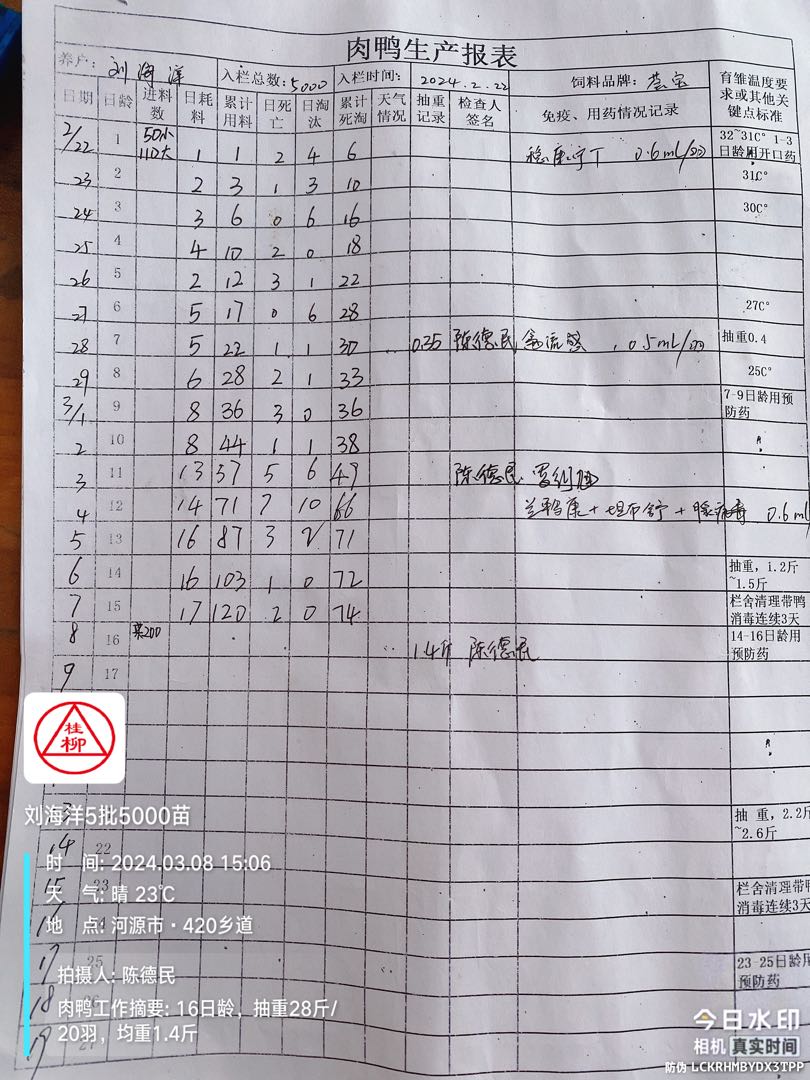 肉鸭生产报表
养户: 刘海洋 入栏总数: 5000 入栏时间: 2024.2.22 饲料品牌: 育雏温度要求或其他关键点标准
日期 日龄 进料数 日耗料 累计用料 日死亡 日淘汰 累计死淘 天气情况 抽重记录 检查人签名 免疫、用药情况记录
2/22 1 50小 110大 1 1 2 4 6 0.6ml/羽 32~31C° 1-3日龄用开口药
23 2 2 3 1 3 10 31C°
24 3 3 6 0 6 16 30C°
25 4 4 10 2 0 18
26 5 2 12 3 1 22
27 6 5 17 0 6 28 27C°
28 7 5 22 1 1 30 0.35 陈德民 禽流感 0.5ml/羽 抽重0.4
29 8 6 28 2 1 33 25C°
3/1 9 8 36 3 0 36 7-9日龄用预防药
2 10 8 44 1 1 38
3 11 13 57 5 6 49 陈德民
4 12 14 71 7 10 66 0.6ml
5 13 16 87 3 2 71
6 14 16 103 1 0 72 抽重,1.2斤~1.5斤
7 15 17 120 2 0 74 栏舍清理带鸭消毒连续3天
8 16 菜200 1.4斤 陈德民 14-16日龄用预防药
9 17
桂柳
刘海洋5批5000苗
抽 重,2.2斤~2.6斤
14 22
时 间: 2024.03.08 15:06
15 23 栏舍清理带鸭消毒连续3天
天 气: 晴 23℃
地 点: 河源市·420乡道
17 25 23-25日龄用预防药
拍摄人: 陈德民
18
肉鸭工作摘要: 16日龄，抽重28斤/
20羽，均重1.4斤
19
今日水印
相机 真实时间
防伪 LCKRHMBYDX3TPP